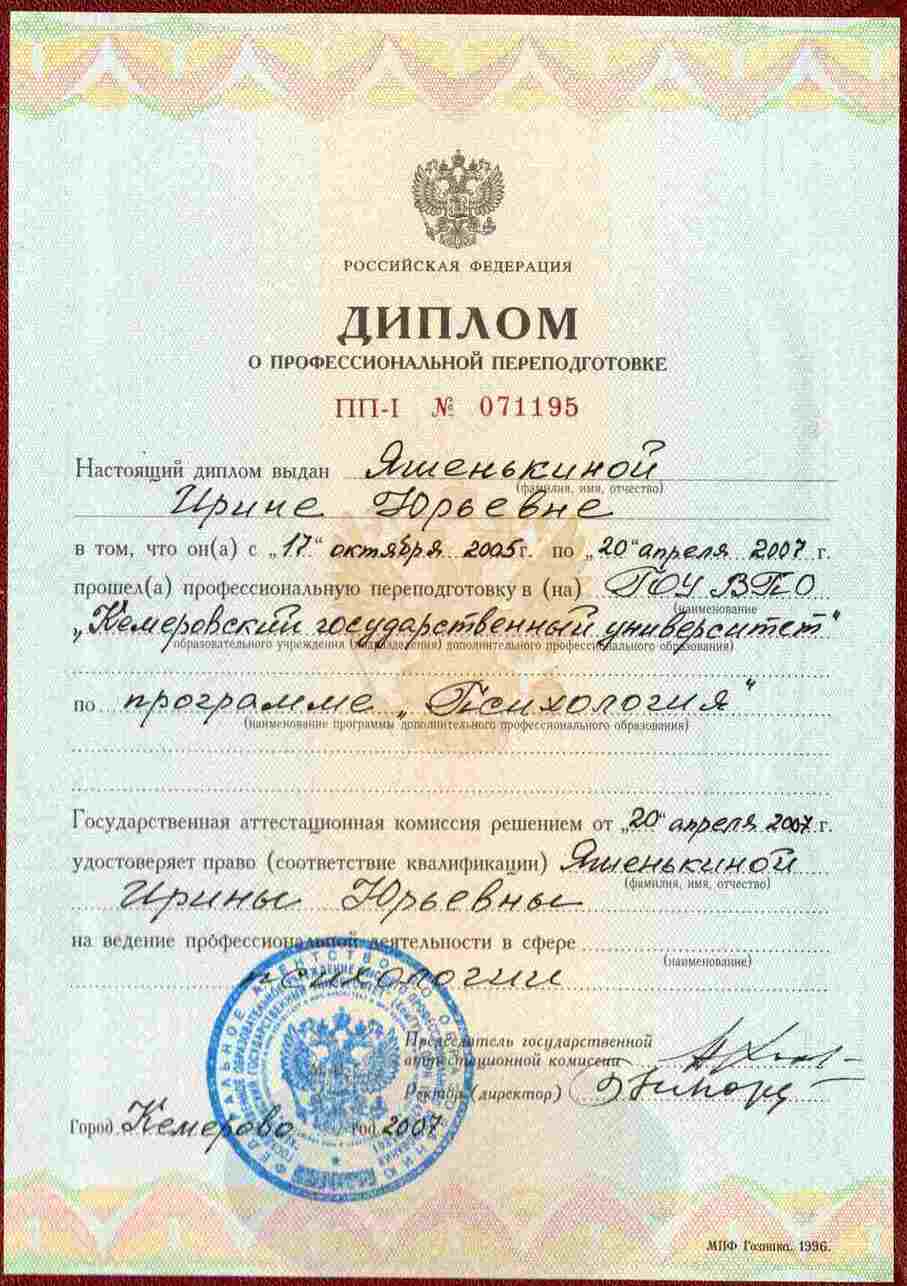 РОССИЙСКАЯ ФЕДЕРАЦИЯ
ДИПЛОМ
О ПРОФЕССИОНАЛЬНОЙ ПЕРЕПОДГОТОВКЕ
ПП-I № 071195
Настоящий диплом выдан Яшенькиной
(фамилия, имя, отчество)
Ирине Юрьевне
в том, что он(а) с „17“ октября 2005г. по „20“ апреля 2007 г.
прошел(а) профессиональную переподготовку в (на) ГОУ ВПО
(наименование
„Кемеровский государственный университет“
образовательного учреждения (подразделения) дополнительного профессионального образования)
по программе „Психология“
(наименование программы дополнительного профессионального образования)
Государственная аттестационная комиссия решением от „20“ апреля 2007 г.
удостоверяет право (соответствие квалификации) Яшенькиной
(фамилия, имя, отчество)
Ирины Юрьевны
на ведение профессиональной деятельности в сфере
(наименование)
психологии
Председатель государственной
аттестационной комиссии
Ректор (директор)
Город Кемерово год 2007
МПФ Гознака. 1996.